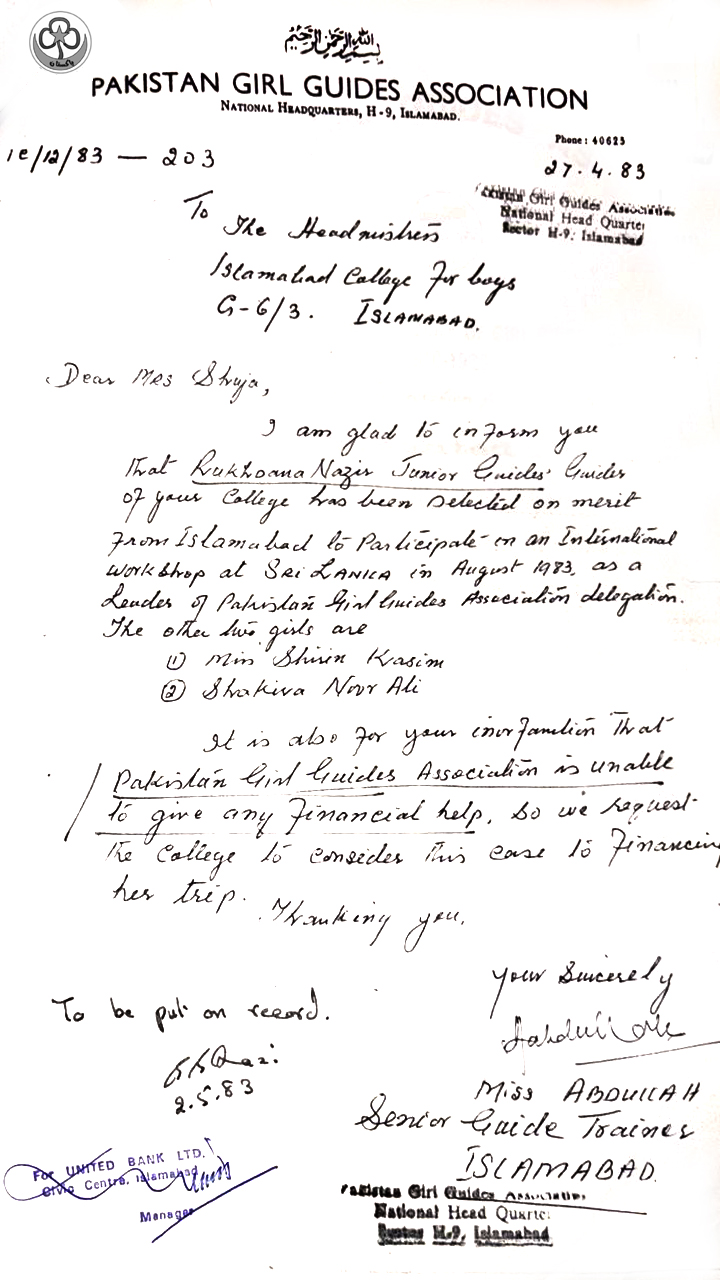 بسم الله الرحمن الرحيم
PAKISTAN GIRL GUIDES ASSOCIATION
NATIONAL HEADQUARTERS, H-9, ISLAMABAD.
Phone: 40625
/12/83 — 203
27.4.83
Pakistan Girl Guides Association
National Head Quarter
Sector H-9, Islamabad
To
The Headmistress
Islamabad College For boys
G-6/3. ISLAMABAD.
Dear Mrs Shuja,
I am glad to inform you
that Rukhsana Nazir Junior Guides' Guider
of your College has been selected on merit
from Islamabad to Participate in an International
workshop at SRI LANKA in August 1983, as a
Leader of Pakistan Girl Guides Association delegation.
The other two girls are
(1) Miss Shirin Krasim
(2) Shakira Noor Ali
It is also for your inorfamtion that
Pakistan Girl Guides Association is unable
to give any Financial help, so we request
the College to consider this case to Financing
her trip.
Thanking you.
your Sincerely
To be put on record.
2.5.83
MISS ABDULLAH
Senior Guide Trainer
ISLAMABAD.
For UNITED BANK LTD.
Civic Centre, Islamabad
Manager
Pakistan Girl Guides Association
National Head Quarter
Sector H-9, Islamabad